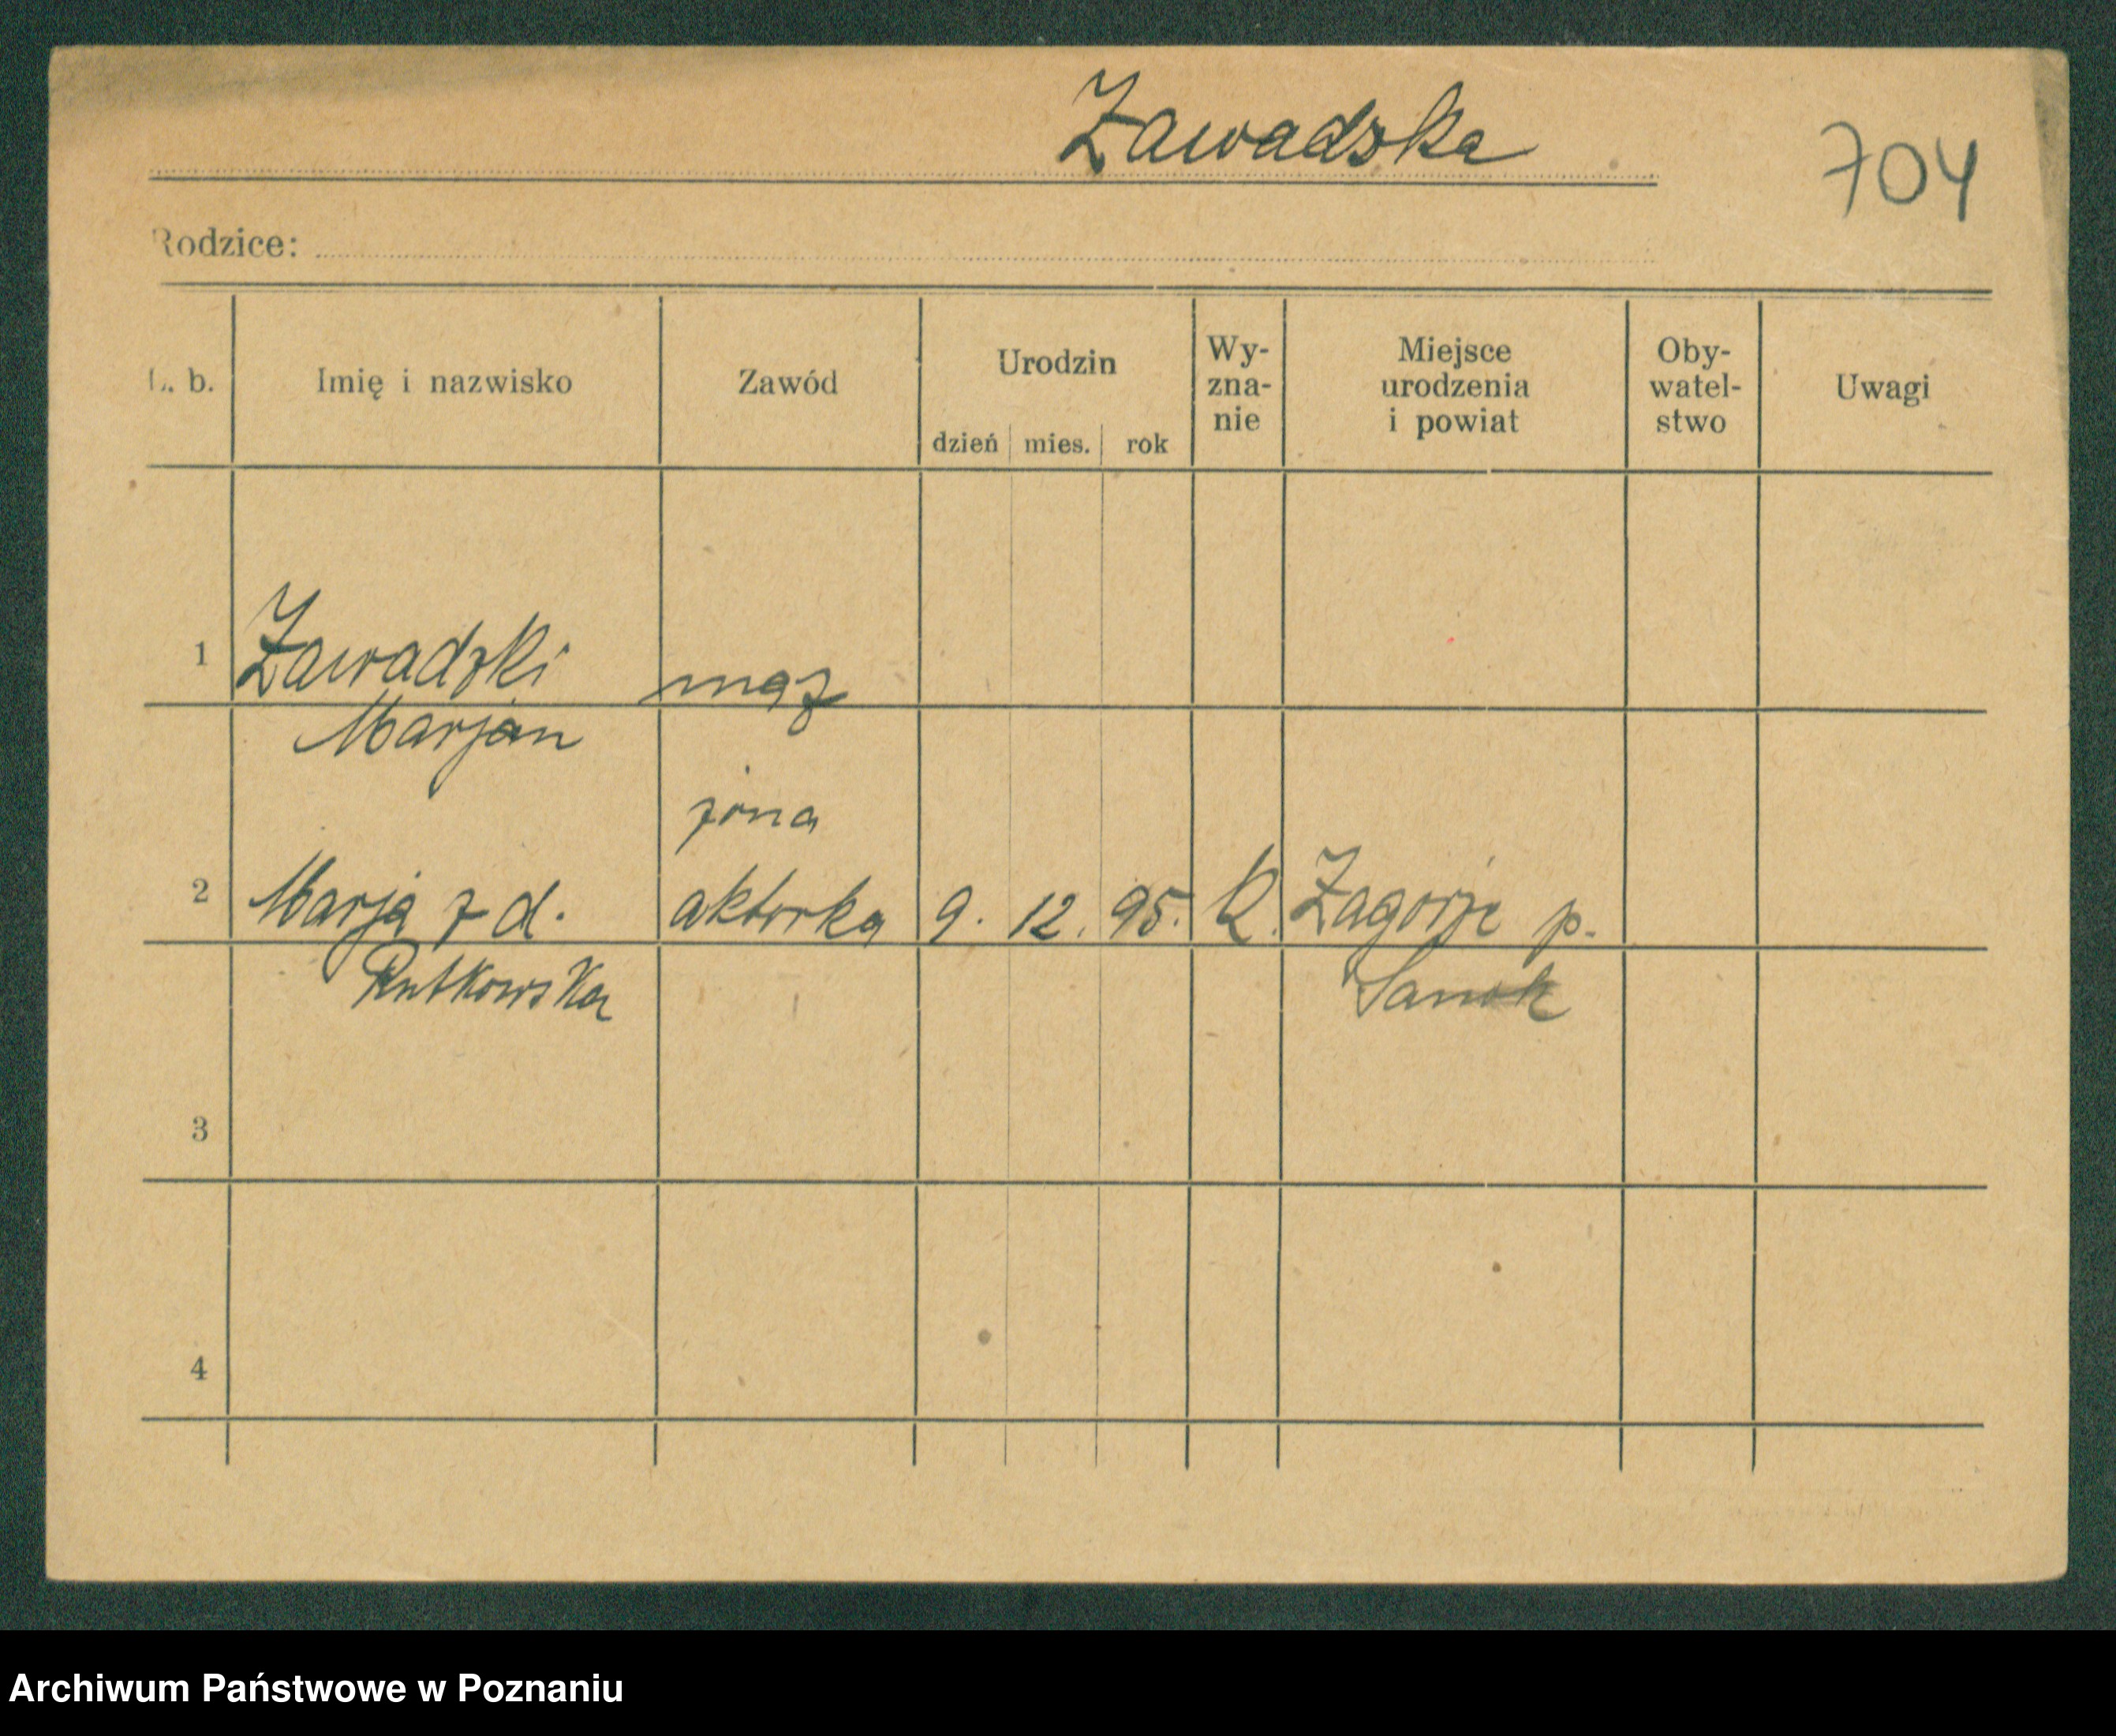 Zawadzka
704
Rodzice:
L. b.
Imię i nazwisko
Zawód
Urodzin
dzień mies. rok
Wy-
zna-
nie
Miejsce
urodzenia
i powiat
Oby-
watel-
stwo
Uwagi
1 Zawadzki mąż
Marjan
żona
2 Marja z d. aktorka 9. 12. 95. K. Zagórze p.
Rutkowska Sanok
3
4
Archiwum Państwowe w Poznaniu